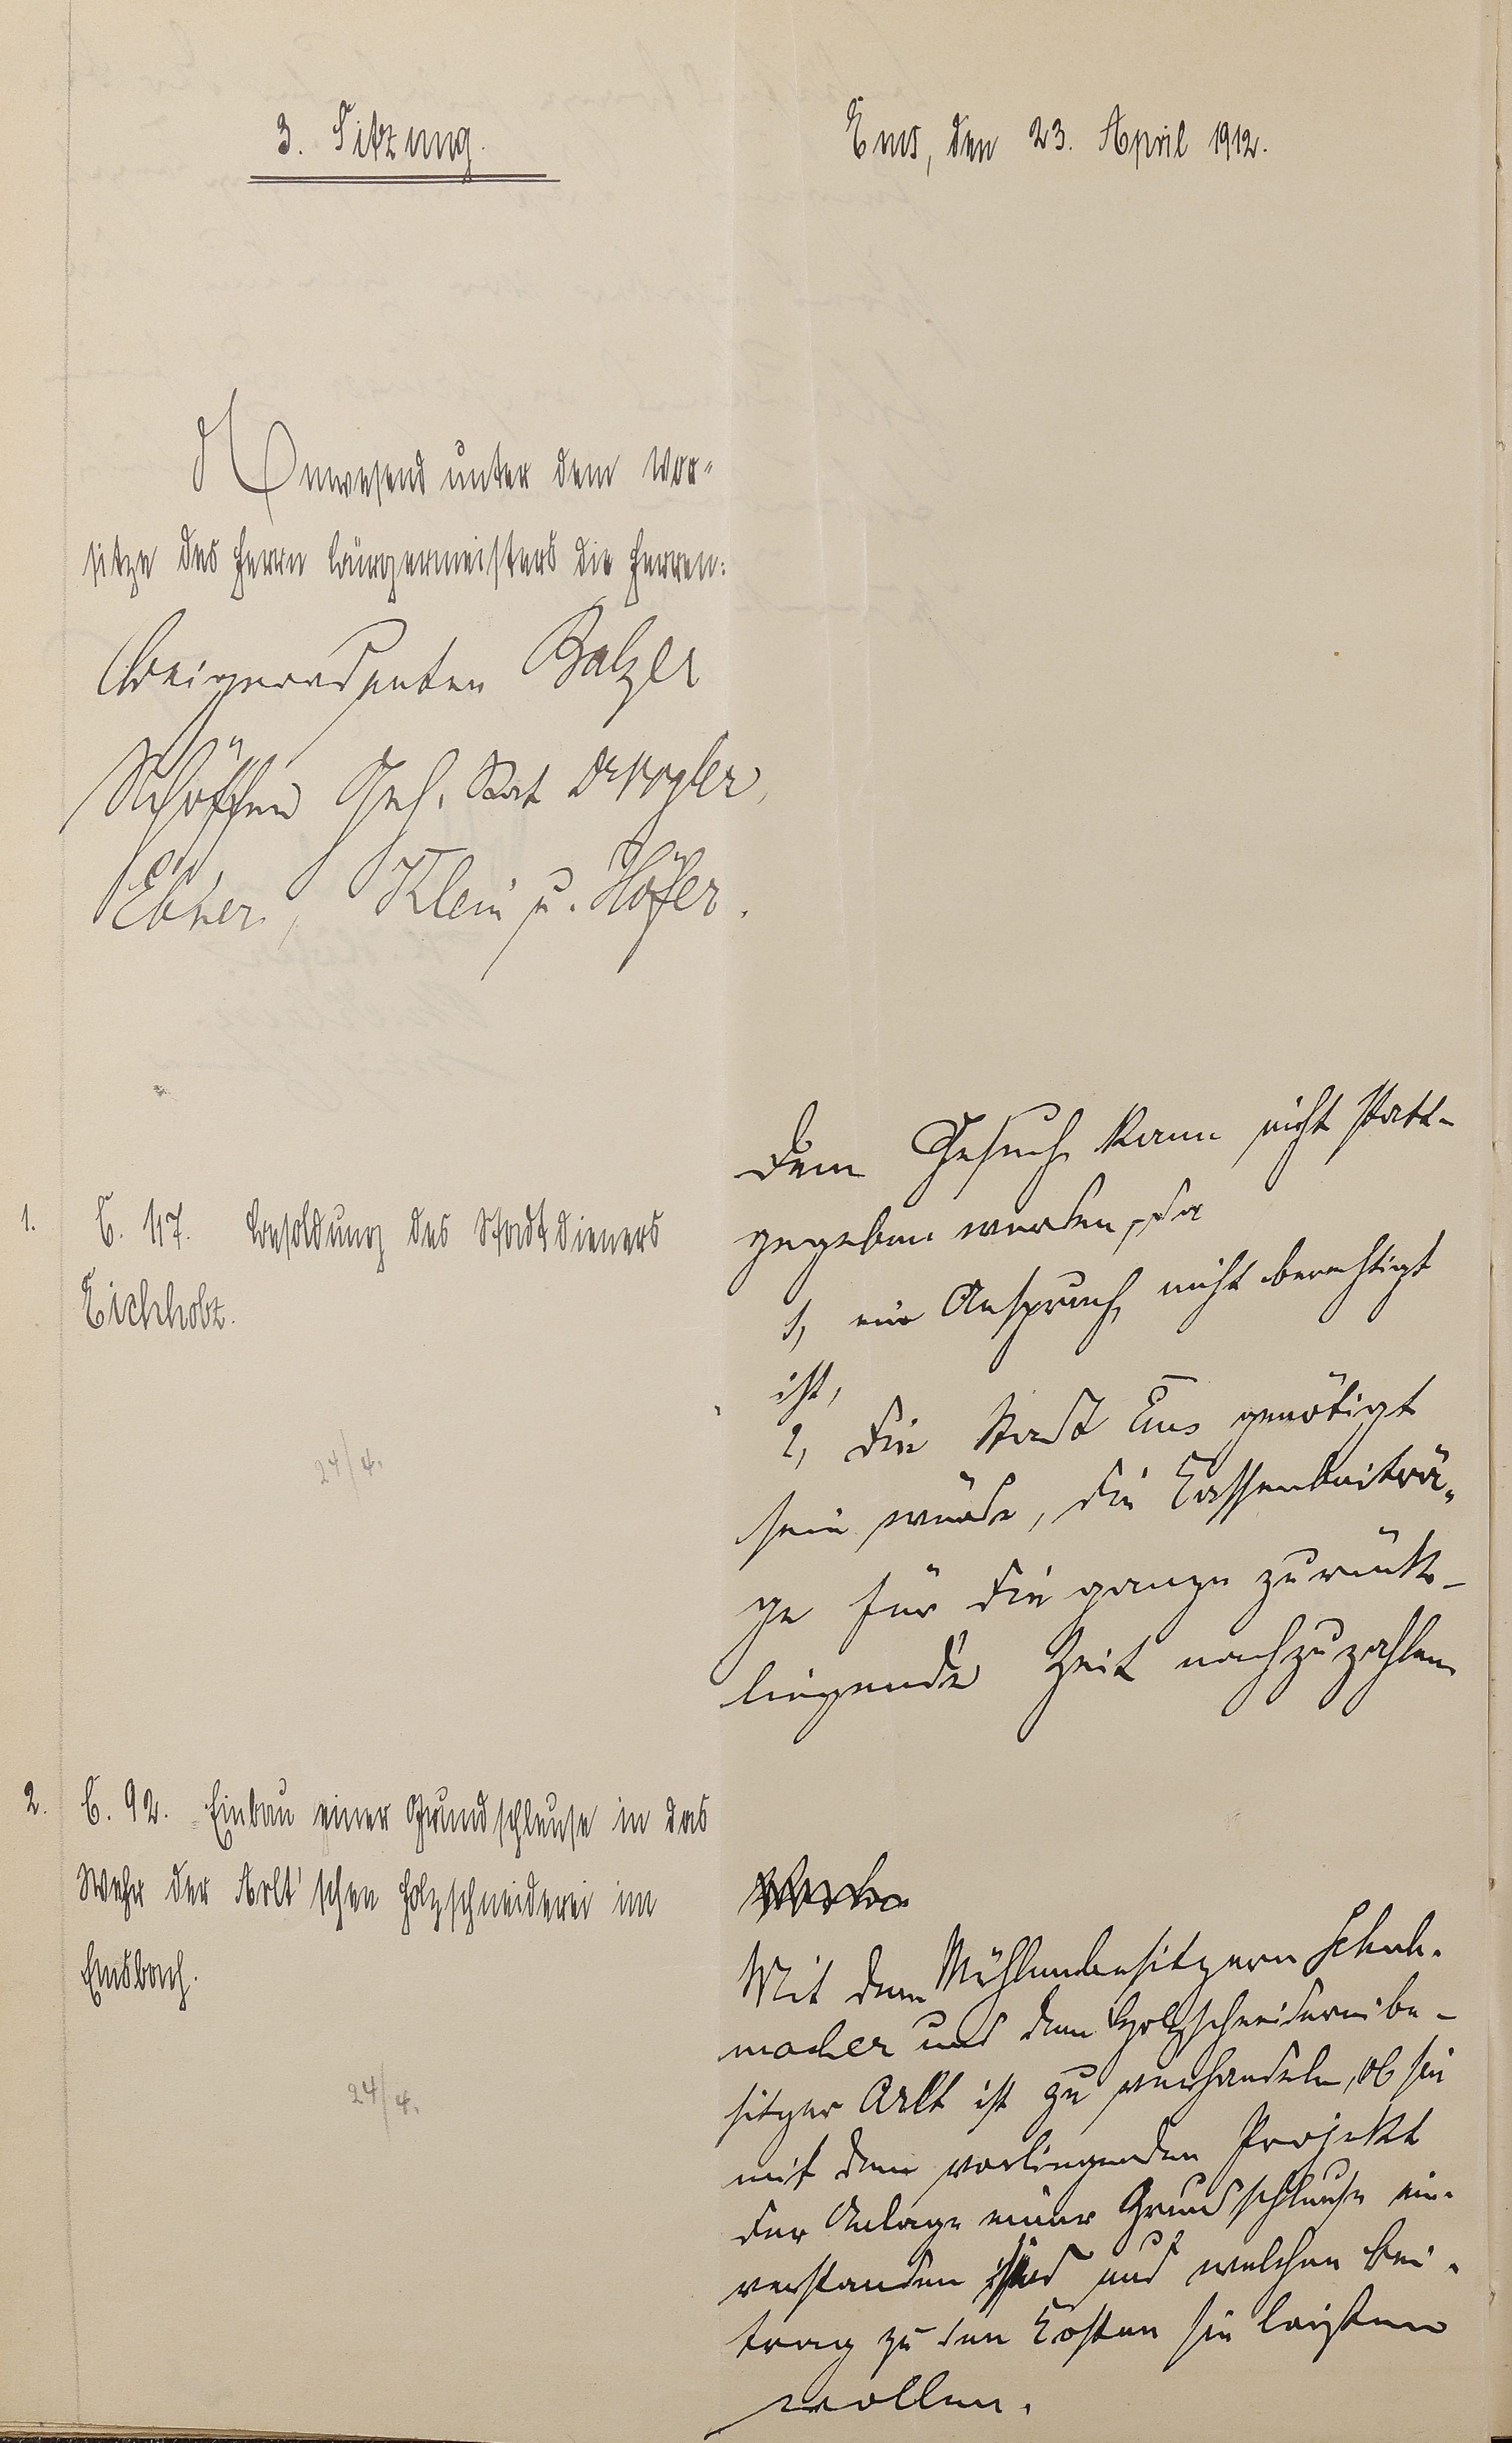 3. Sitzung.
Ems, den 23. April 1912.
Anwesend unter dem Vor-
sitze des Herrn Bürgermeisters die Herren:
Beigeordneten Balzer
Schöffen Geh. Rat Dr Vogler,
Ebner, Klein u. Höfer.
1. C. 117. Besoldung des Stadtdieners
Eichholz.
24/4.
Dem Gesuch kann nicht statt-
gegeben werden, da
1, ein Anspruch nicht berechtigt
ist,
2, die Stadt Ems genötigt
sein würde, die Kassenbeiträ-
ge für die ganze zurück-
liegende Zeit nachzuzahlen
2. C. 92. Einbau einer Grundschleuse in das
Wehr der Arlt'schen Holzschneiderei im
Emsbach.
24/4.
Mit dem Mühlenbesitzern Schuh-
macher und dem Holzschneidereibe-
sitzer Arlt ist zu verhandeln, ob sie
mit dem vorliegenden Projekt
der Anlage einer Grundschleuse ein-
verstanden sind und welchen Bei-
trag zu den Kosten sie leisten
wollen.